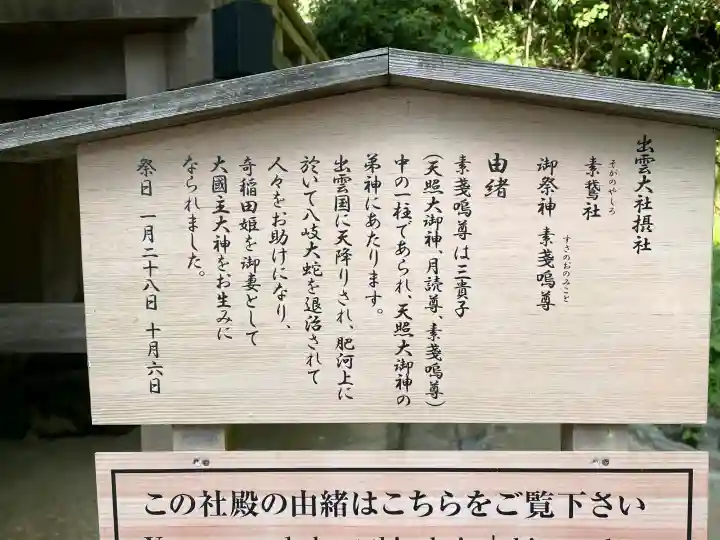 出雲大社摂社
そがのやしろ
素鵞社
御祭神 素戔嗚尊
すさのおのみこと
由緒
素戔嗚尊は三貴子
(天照大御神、月読尊、素戔嗚尊)
中の一柱であられ、天照大御神の
弟神にあたります。
出雲国に天降りされ、肥河上に
於いて八岐大蛇を退治されて
人々をお助けになり、
奇稲田姫を御妻として
大國主大神をお生みに
なられました。
祭日 一月二十八日 十月六日
この社殿の由緒はこちらをご覧下さい